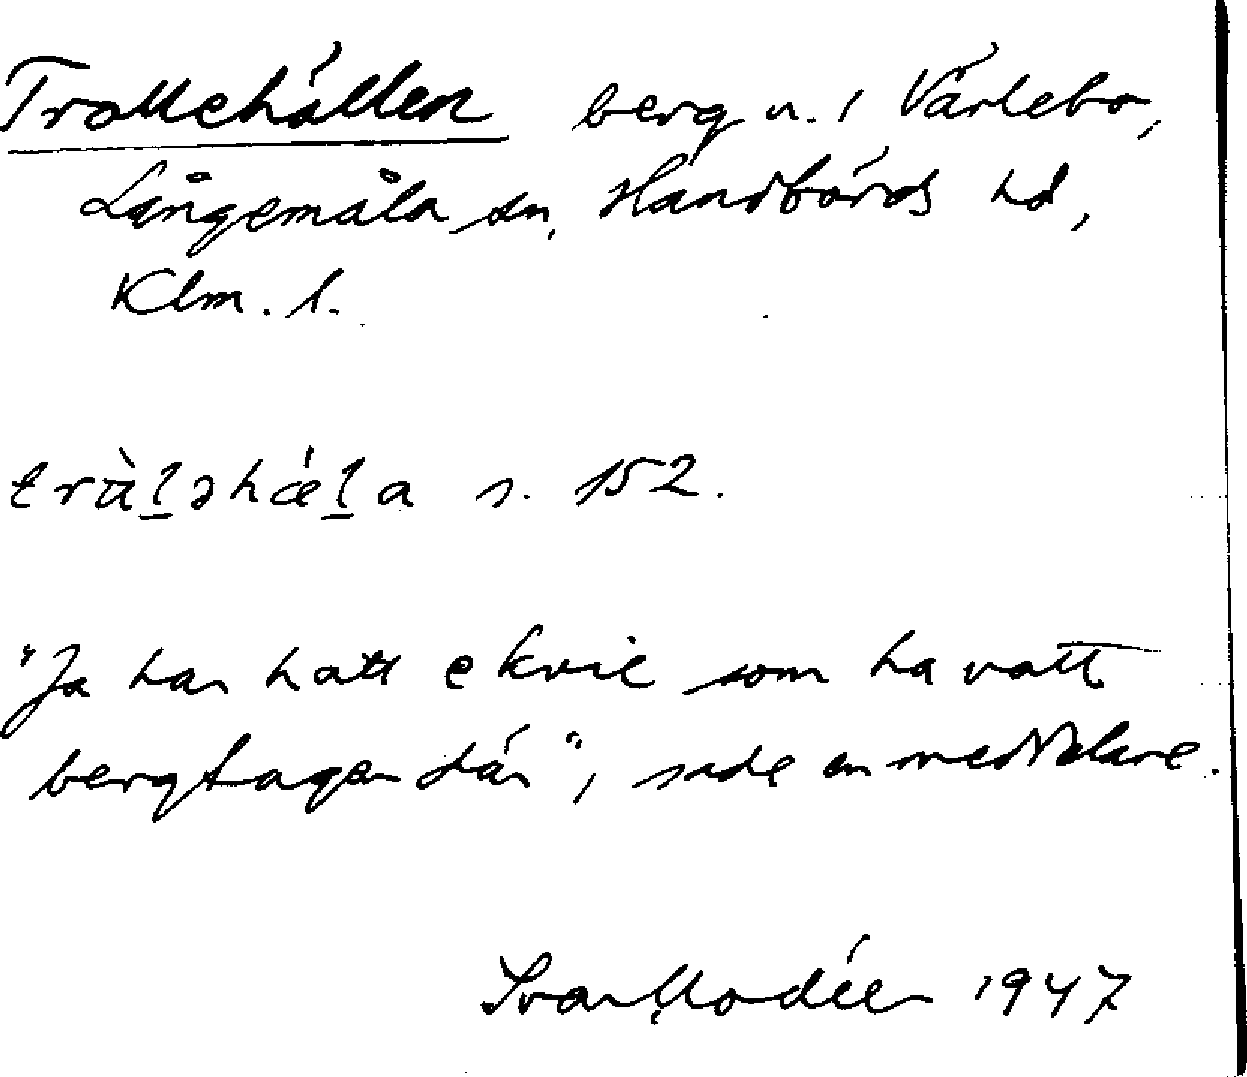 Trollehällen berg n. i Värlebo,
Långemåla sn, Handbörds hd,
Klm. l.
tràl̠əhǽl̠a s. 152.
"Ja har hatt e kvie som ha vatt
bergtagen där", sade en meddelare.
Ivar Modéer 1947